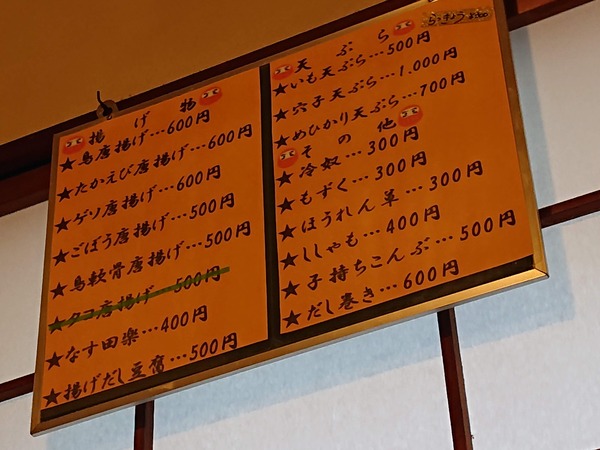 揚げ物
★鳥唐揚げ…600円
★たかえび唐揚げ…600円
★ゲソ唐揚げ…600円
★ごぼう唐揚げ…500円
★鳥軟骨唐揚げ…500円
★タコ唐揚げ…500円
★なす田楽…400円
★揚げだし豆腐…500円
らっきょう
天ぷら
★いも天ぷら…500円
★穴子天ぷら…1.000円
★めひかり天ぷら…700円
その他
★冷奴…300円
★もずく…300円
★ほうれん草…300円
★ししゃも…400円
★子持ちこんぶ…500円
★だし巻き…600円